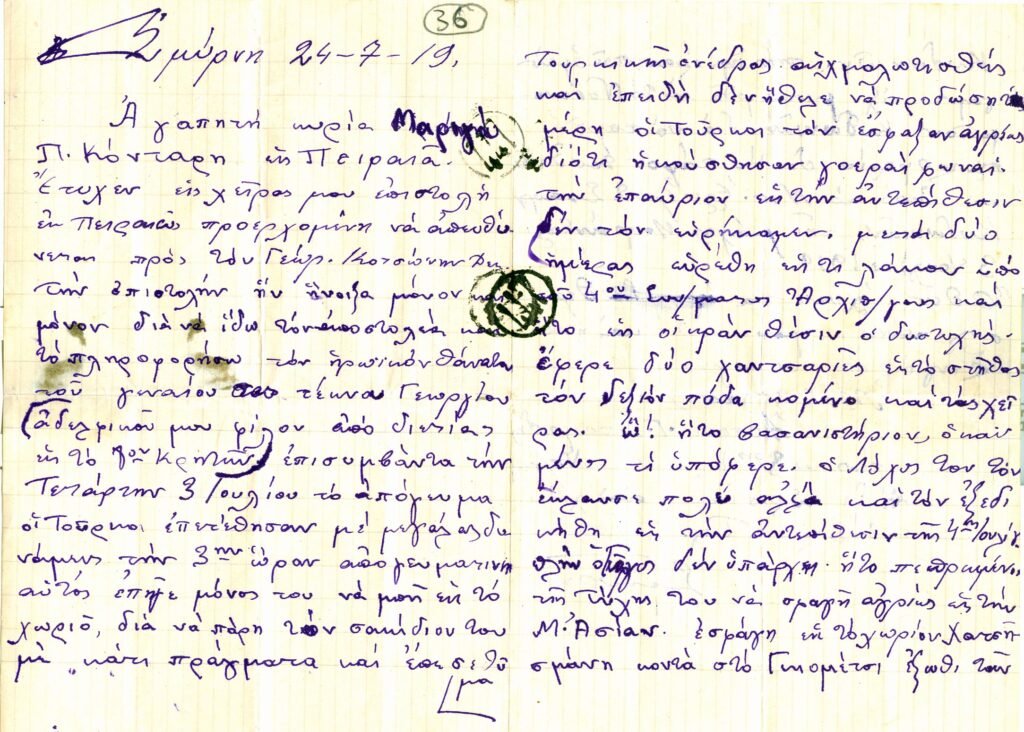 36
Σμύρνη 24-7-19.
Ἀγαπητή κυρία Μαρηγώ
Π. Κόνταρη εἰς Πειραιᾶ.
Ἔτυχεν εἰς χεῖρας μου ἐπιστολή
ἐκ Πειραιῶς προερχομένη νά ἀπευθύ
νεται πρός τόν Γεώργ. Κοτσώνην
τήν ἐπιστολήν ἥν ἤνοιξα μόνον καί
μόνον διά νά ἴδω τόν ἀποστολέα καί
τό πληροφορήσω τόν ἡρωϊκόν θάνατον
τοῦ γενναίου τέκνου Γεωργίου
ἀδελφικοῦ μου φίλου ἀπό διετίας
εἰς τό 7ον Κρητῶν, ἐπισυμβάντα τήν
Τετάρτην 3 Ἰουλίου τό ἀπόγευμα
οἱ Τοῦρκοι ἐπετέθησαν μέ μεγάλας δυ
νάμεις τήν 3ην ὥραν ἀπογευματινήν
αὐτός ἐπῆγε μόνος του νά μπῆ εἰς τό
χωριό, διά νά πάρη τόν σακίδιον του
μέ κάτι πράγματα καί ἔπεσε
μα
Τουρκικῆς ἐνέδρας αἰχμαλωτισθείς
καί ἐπειδή δέν ἤθελε νά προδώση τά
μέρη οἱ Τοῦρκοι τόν ἔσφαξαν ἀγρίως
διότι ἠκούσθησαν γοεραί φωναί.
τήν ἐπαύριον εἰς τήν ἀντεπίθεσιν
δέν τόν εὑρήκαμεν. μετά δύο
ἡμέρας εὑρέθη εἰς τι λάκκον ὑπό
τοῦ 4ου Συν/ματος Ἀρχιπ/γους καί
ἦτο εἰς οἰκτράν θέσιν ὁ δυστυχής.
ἔφερε δύο χαντσαριές εἰς τό στῆθος
τόν δεξιόν πόδα κομένο καί τάς χεῖ
ρας. ὤ! ἦτο βασανιστήριον, ὁ καη
μένος τί ὑπόφερε. ὁ Λόχος του τόν
ἔκλαυσε πολύ ἀλλά καί τόν ἐξεδι
κήθη εἰς τήν ἀντεπίθεσιν τῆς 4ης Ἰουλίου
πλήν ὁ Γεῶργος δέν ὑπάρχει. ἦτο πεπρωμένον
τῆς τύχης του νά σφαγῆ ἀγρίως εἰς τήν
Μ. Ἀσίαν. ἐσφάγη εἰς τό χωρίον Χατζη
σμάνη κοντά στό Γκιομέτσι ἔξωθι τῶν